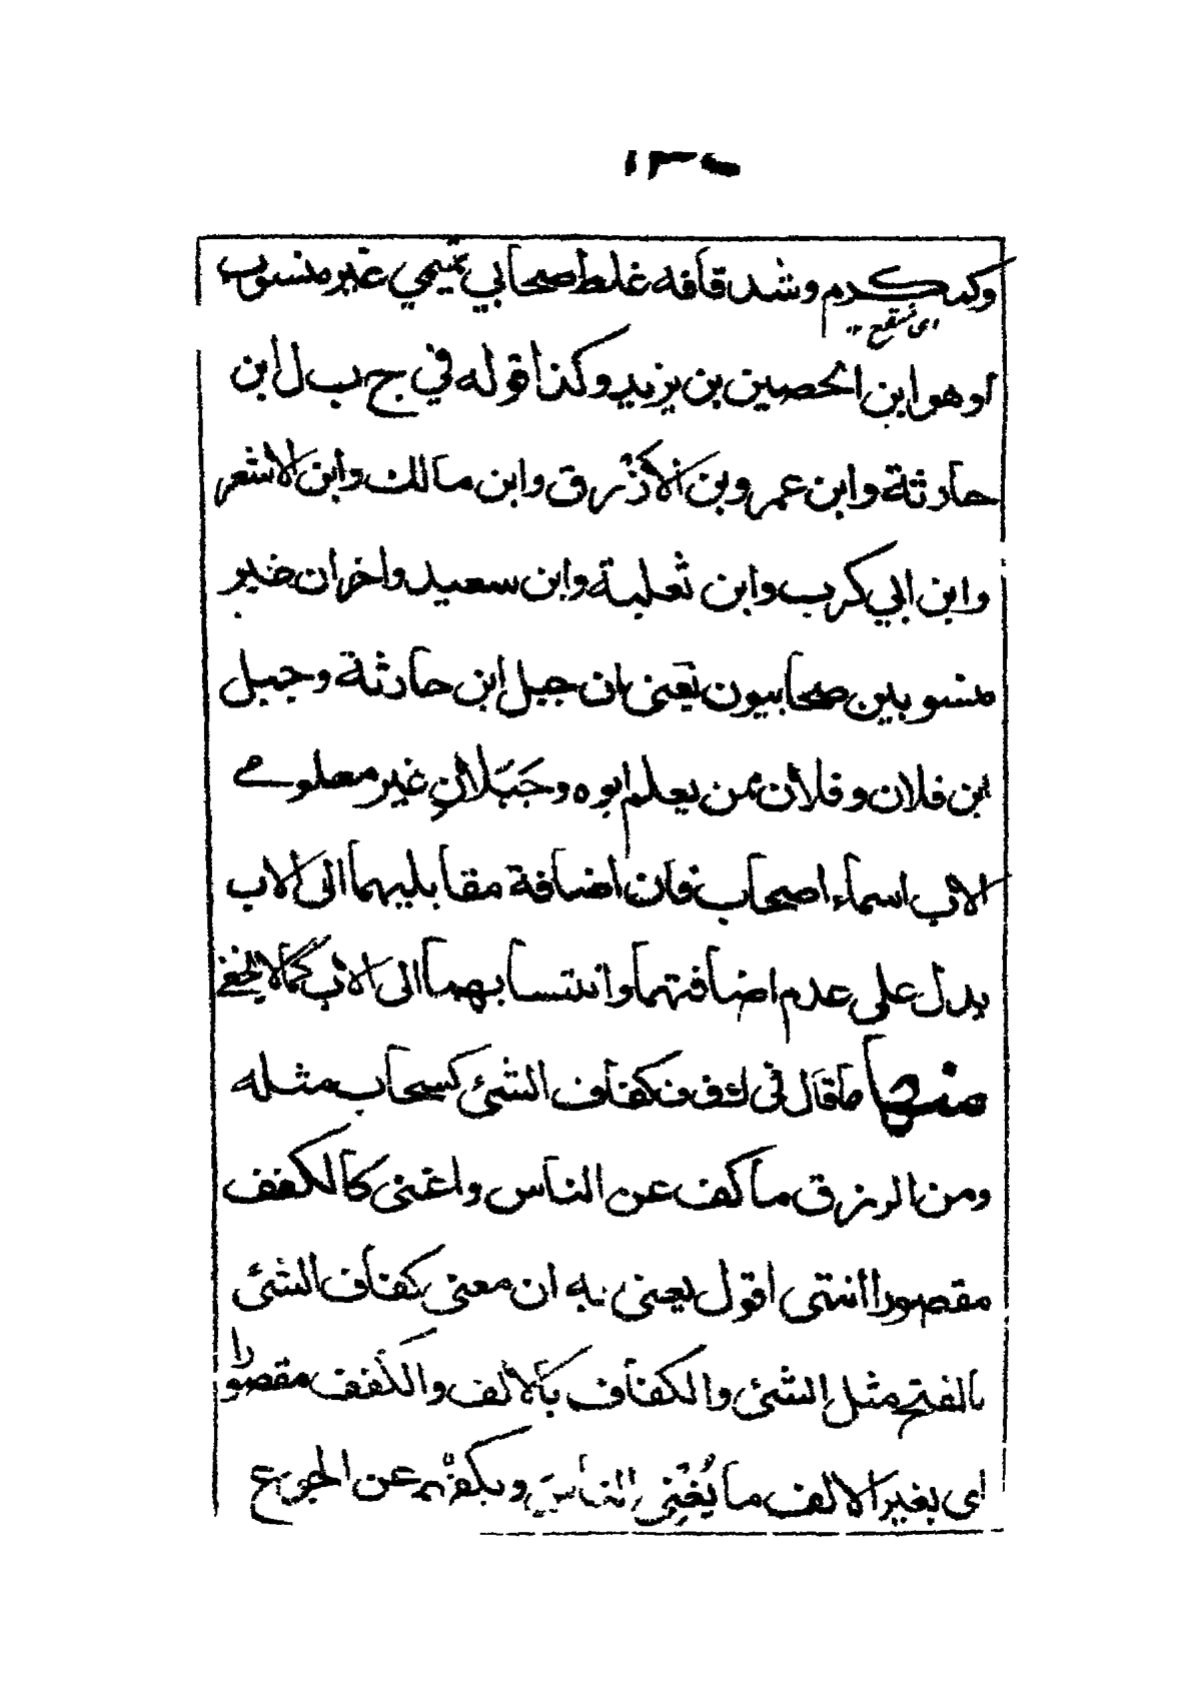 وشد قافه غلط صحابي تميمي غير منسوب
او هو ابن الحصين بن يزيد وكذا قوله في ج ب ل ابن
حارثة وابن عمرو بن الأزرق وابن مالك وابن الاشعر
وابن ابي كرب وابن ثعلبة وابن سعيد واخران غير
منسوبين صحابيون يعنى ان جبل ابن حارثة وجبل
ابن فلان وفلان ممن يعلم ابوه وجَبَلانِ غير معلومے
الاب اسماء اصحاب فان اضافة مقابليهما الى الاب
يدل على عدم اضافتهما وانتسابهما الى الاب كما لا يخفے
منها ما قال فى ك ف ف كفاف الشئ كسحاب مثله
ومن الرزق ما كف عن الناس واغنى كالكفف
مقصورا انتهى اقول يعنى به ان معنى كفاف الشئ
بالفتح مثل الشئ والكفاف بالالف والكفف مقصورا
اى بغير الالف ما يُغْنِى الناسَ ويكفهم عن الجوع